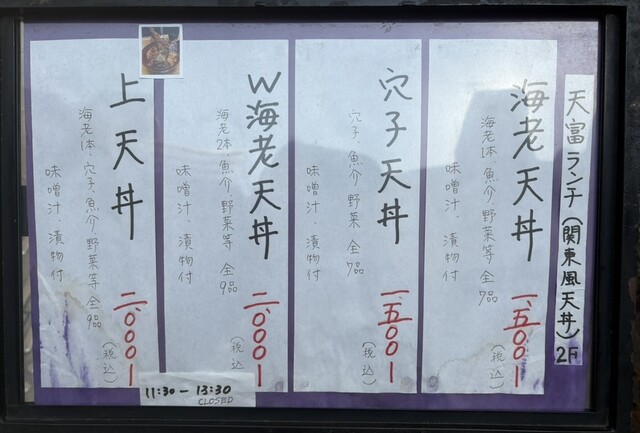 天富ランチ(関東風天丼)2F
海老天丼
海老1本、魚介、野菜等 全7品
味噌汁、漬物付
一、五〇〇ー
(税込)
穴子天丼
穴子、魚介、野菜 全7品
味噌汁、漬物付
一、五〇〇ー
(税込)
W海老天丼
海老2本、魚介、野菜等 全9品
味噌汁、漬物付
二、〇〇〇ー
(税込)
上天丼
海老1本、穴子、魚介、野菜等 全9品
味噌汁、漬物付
二、〇〇〇ー
(税込)
11:30 - 13:30
CLOSED